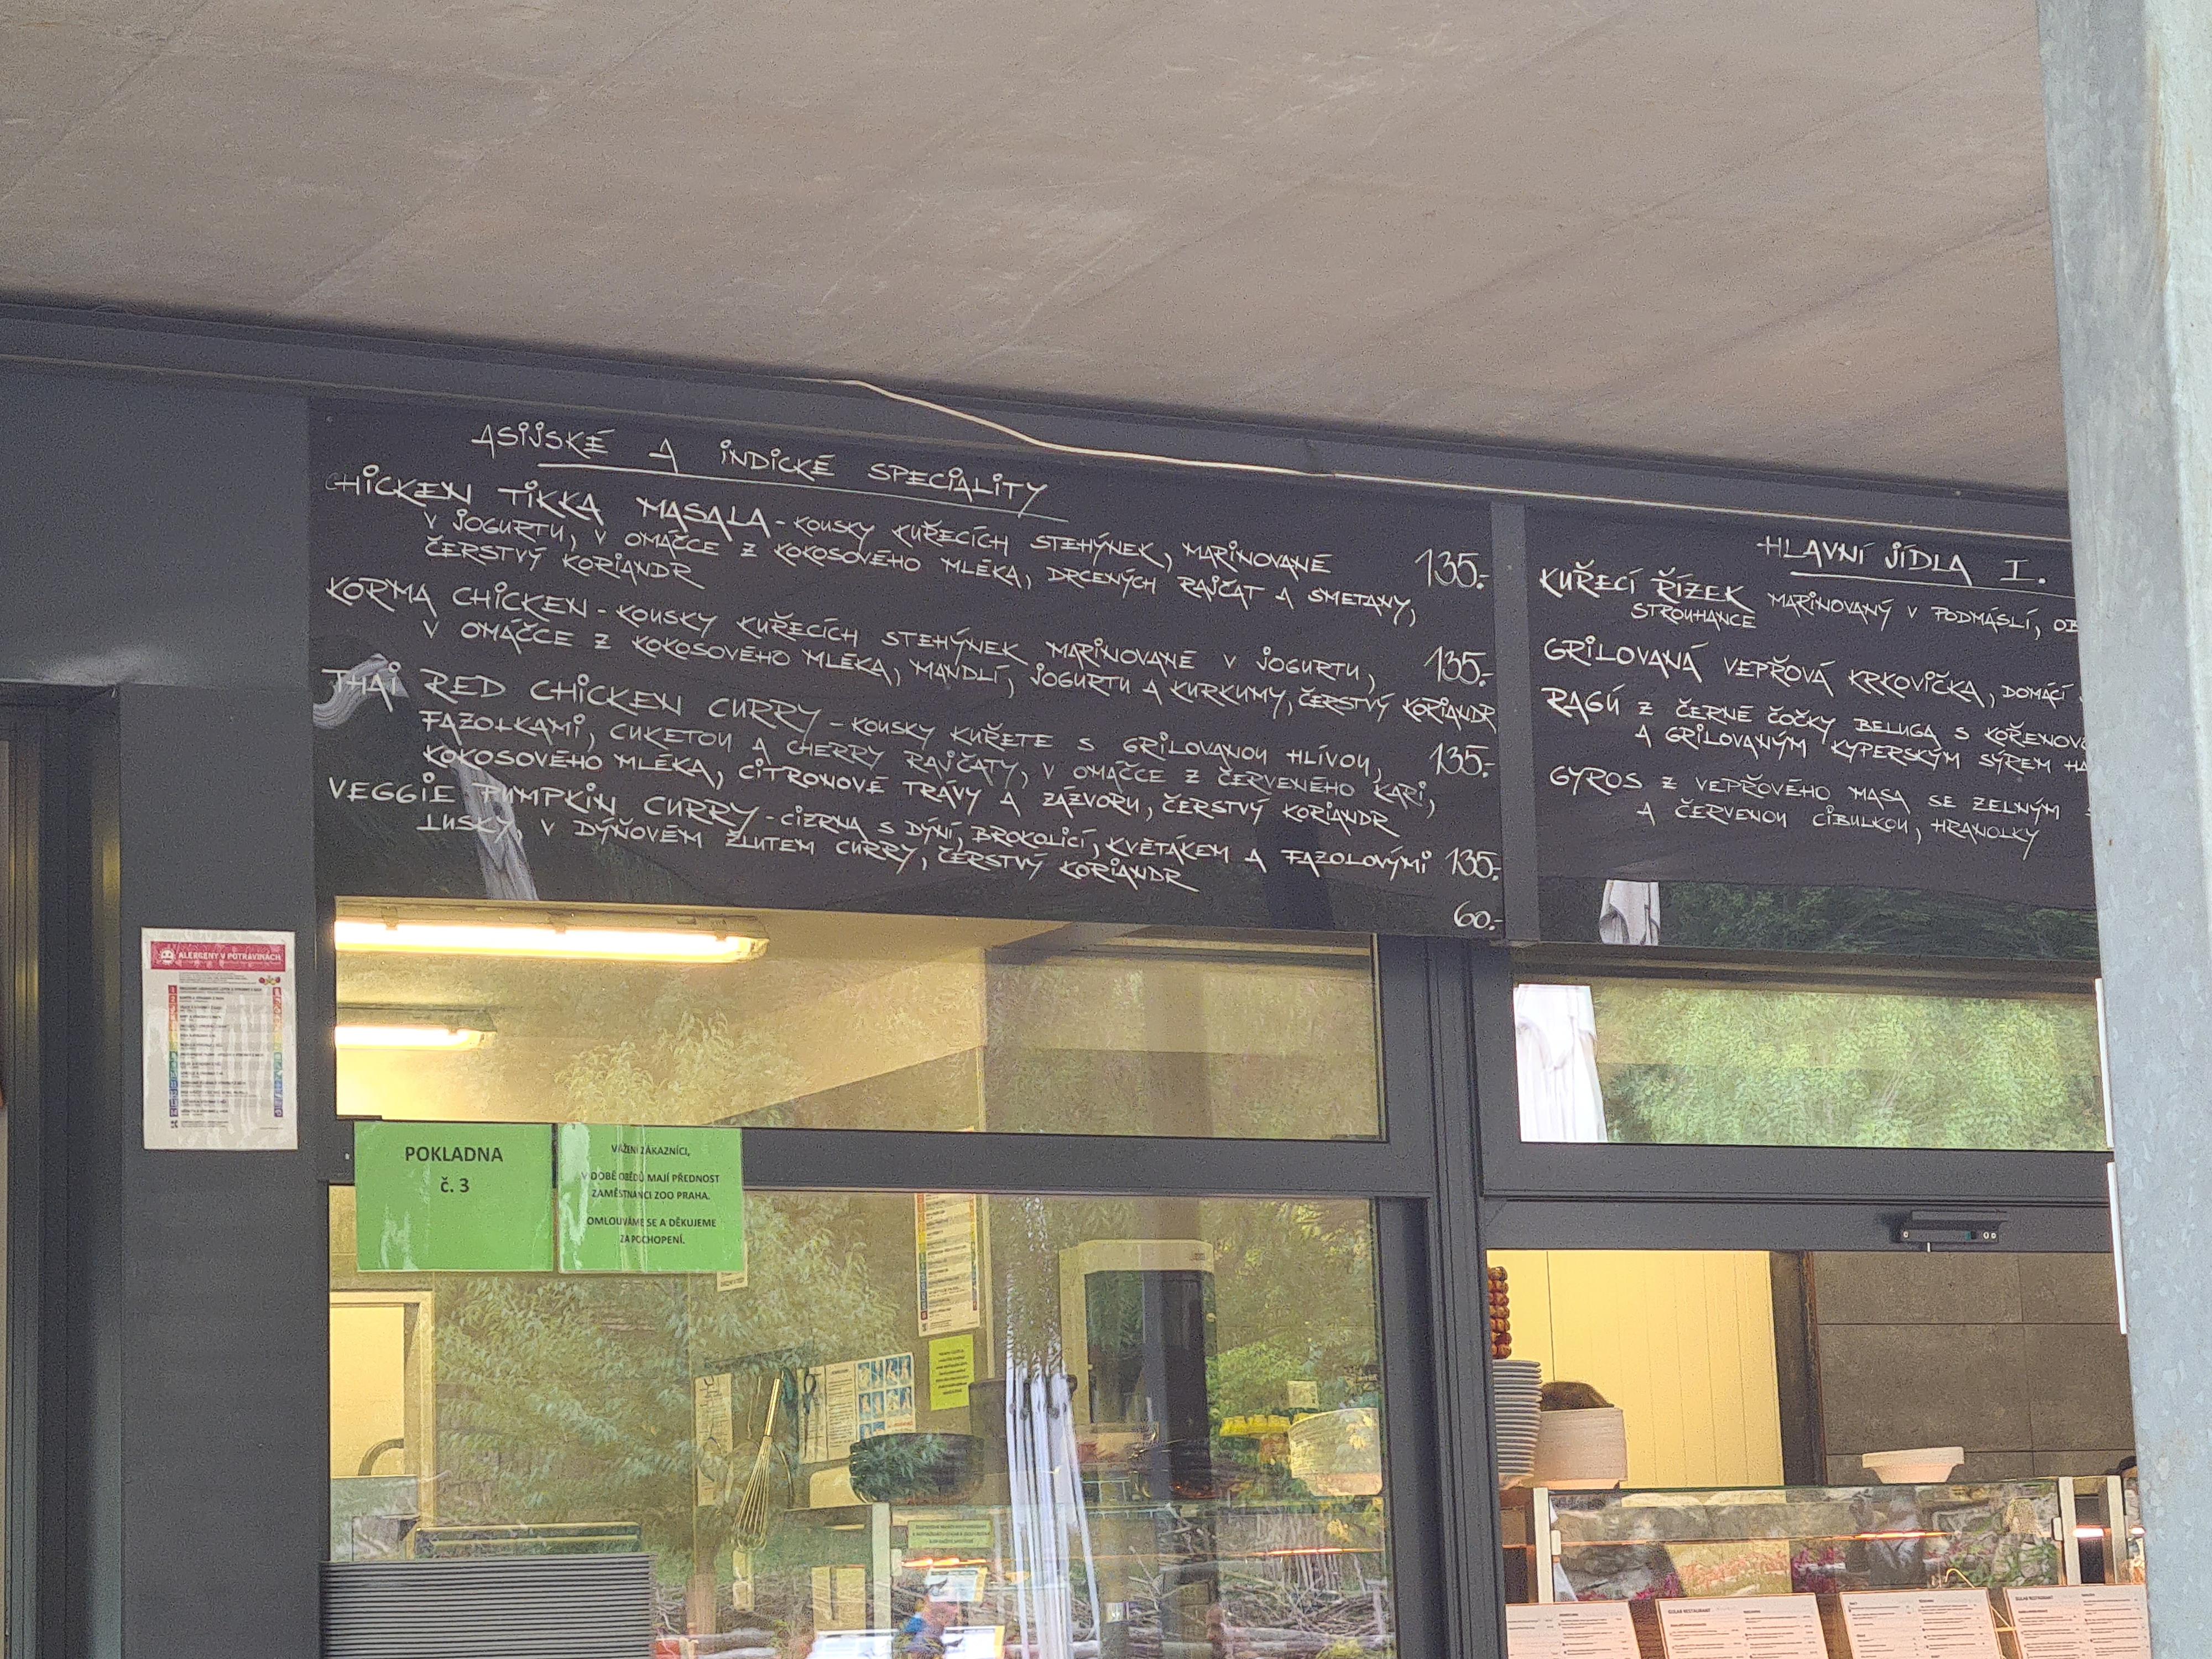 ASIJSKÉ A INDICKÉ SPECIALITY
CHICKEN TIKKA MASALA - KOUSKY KUŘECÍCH STEHÝNEK, MARINOVANÉ 135.-
V JOGURTU, V OMÁČCE Z KOKOSOVÉHO MLÉKA, DRCENÝCH RAJČAT A SMETANY,
ČERSTVÝ KORIANDR
KORMA CHICKEN - KOUSKY KUŘECÍCH STEHÝNEK MARINOVANÉ V JOGURTU, 135.-
V OMÁČCE Z KOKOSOVÉHO MLÉKA, MANDLÍ, JOGURTU A KURKUMY, ČERSTVÝ KORIANDR
THAI RED CHICKEN CURRY - KOUSKY KUŘETE S GRILOVANOU HLÍVOU, 135.-
FAZOLKAMI, CUKETOU A CHERRY RAJČATY, V OMÁČCE Z ČERVENÉHO KARI,
KOKOSOVÉHO MLÉKA, CITRONOVÉ TRÁVY A ZÁZVORU, ČERSTVÝ KORIANDR
VEGGIE PUMPKIN CURRY - CIZRNA S DÝNÍ, BROKOLICÍ, KVĚTÁKEM A FAZOLOVÝMI 135.-
LUSKY, V DÝŇOVÉM ŽLUTÉM CURRY, ČERSTVÝ KORIANDR
60.-
HLAVNÍ JÍDLA I.
KUŘECÍ ŘÍZEK MARINOVANÝ V PODMÁSLÍ, OB
STROUHANCE
GRILOVANÁ VEPŘOVÁ KRKOVIČKA, DOMÁCÍ
RAGÚ Z ČERNÉ ČOČKY BELUGA S KOŘENOVO
A GRILOVANÝM KYPERSKÝM SÝREM HA
GYROS Z VEPŘOVÉHO MASA SE ZELNÝM
A ČERVENOU CIBULKOU, HRANOLKY
ALERGENY V POTRAVINÁCH
POKLADNA
č. 3
VÁŽENÍ ZÁKAZNÍCI,
V DOBĚ OBĚDŮ MAJÍ PŘEDNOST
ZAMĚSTNANCI ZOO PRAHA.
OMLOUVÁME SE A DĚKUJEME
ZA POCHOPENÍ.